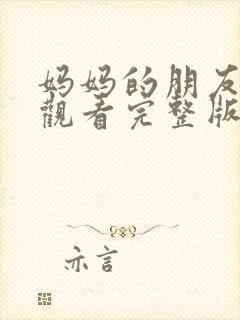 妈妈的朋友
觀看完整版
亦言